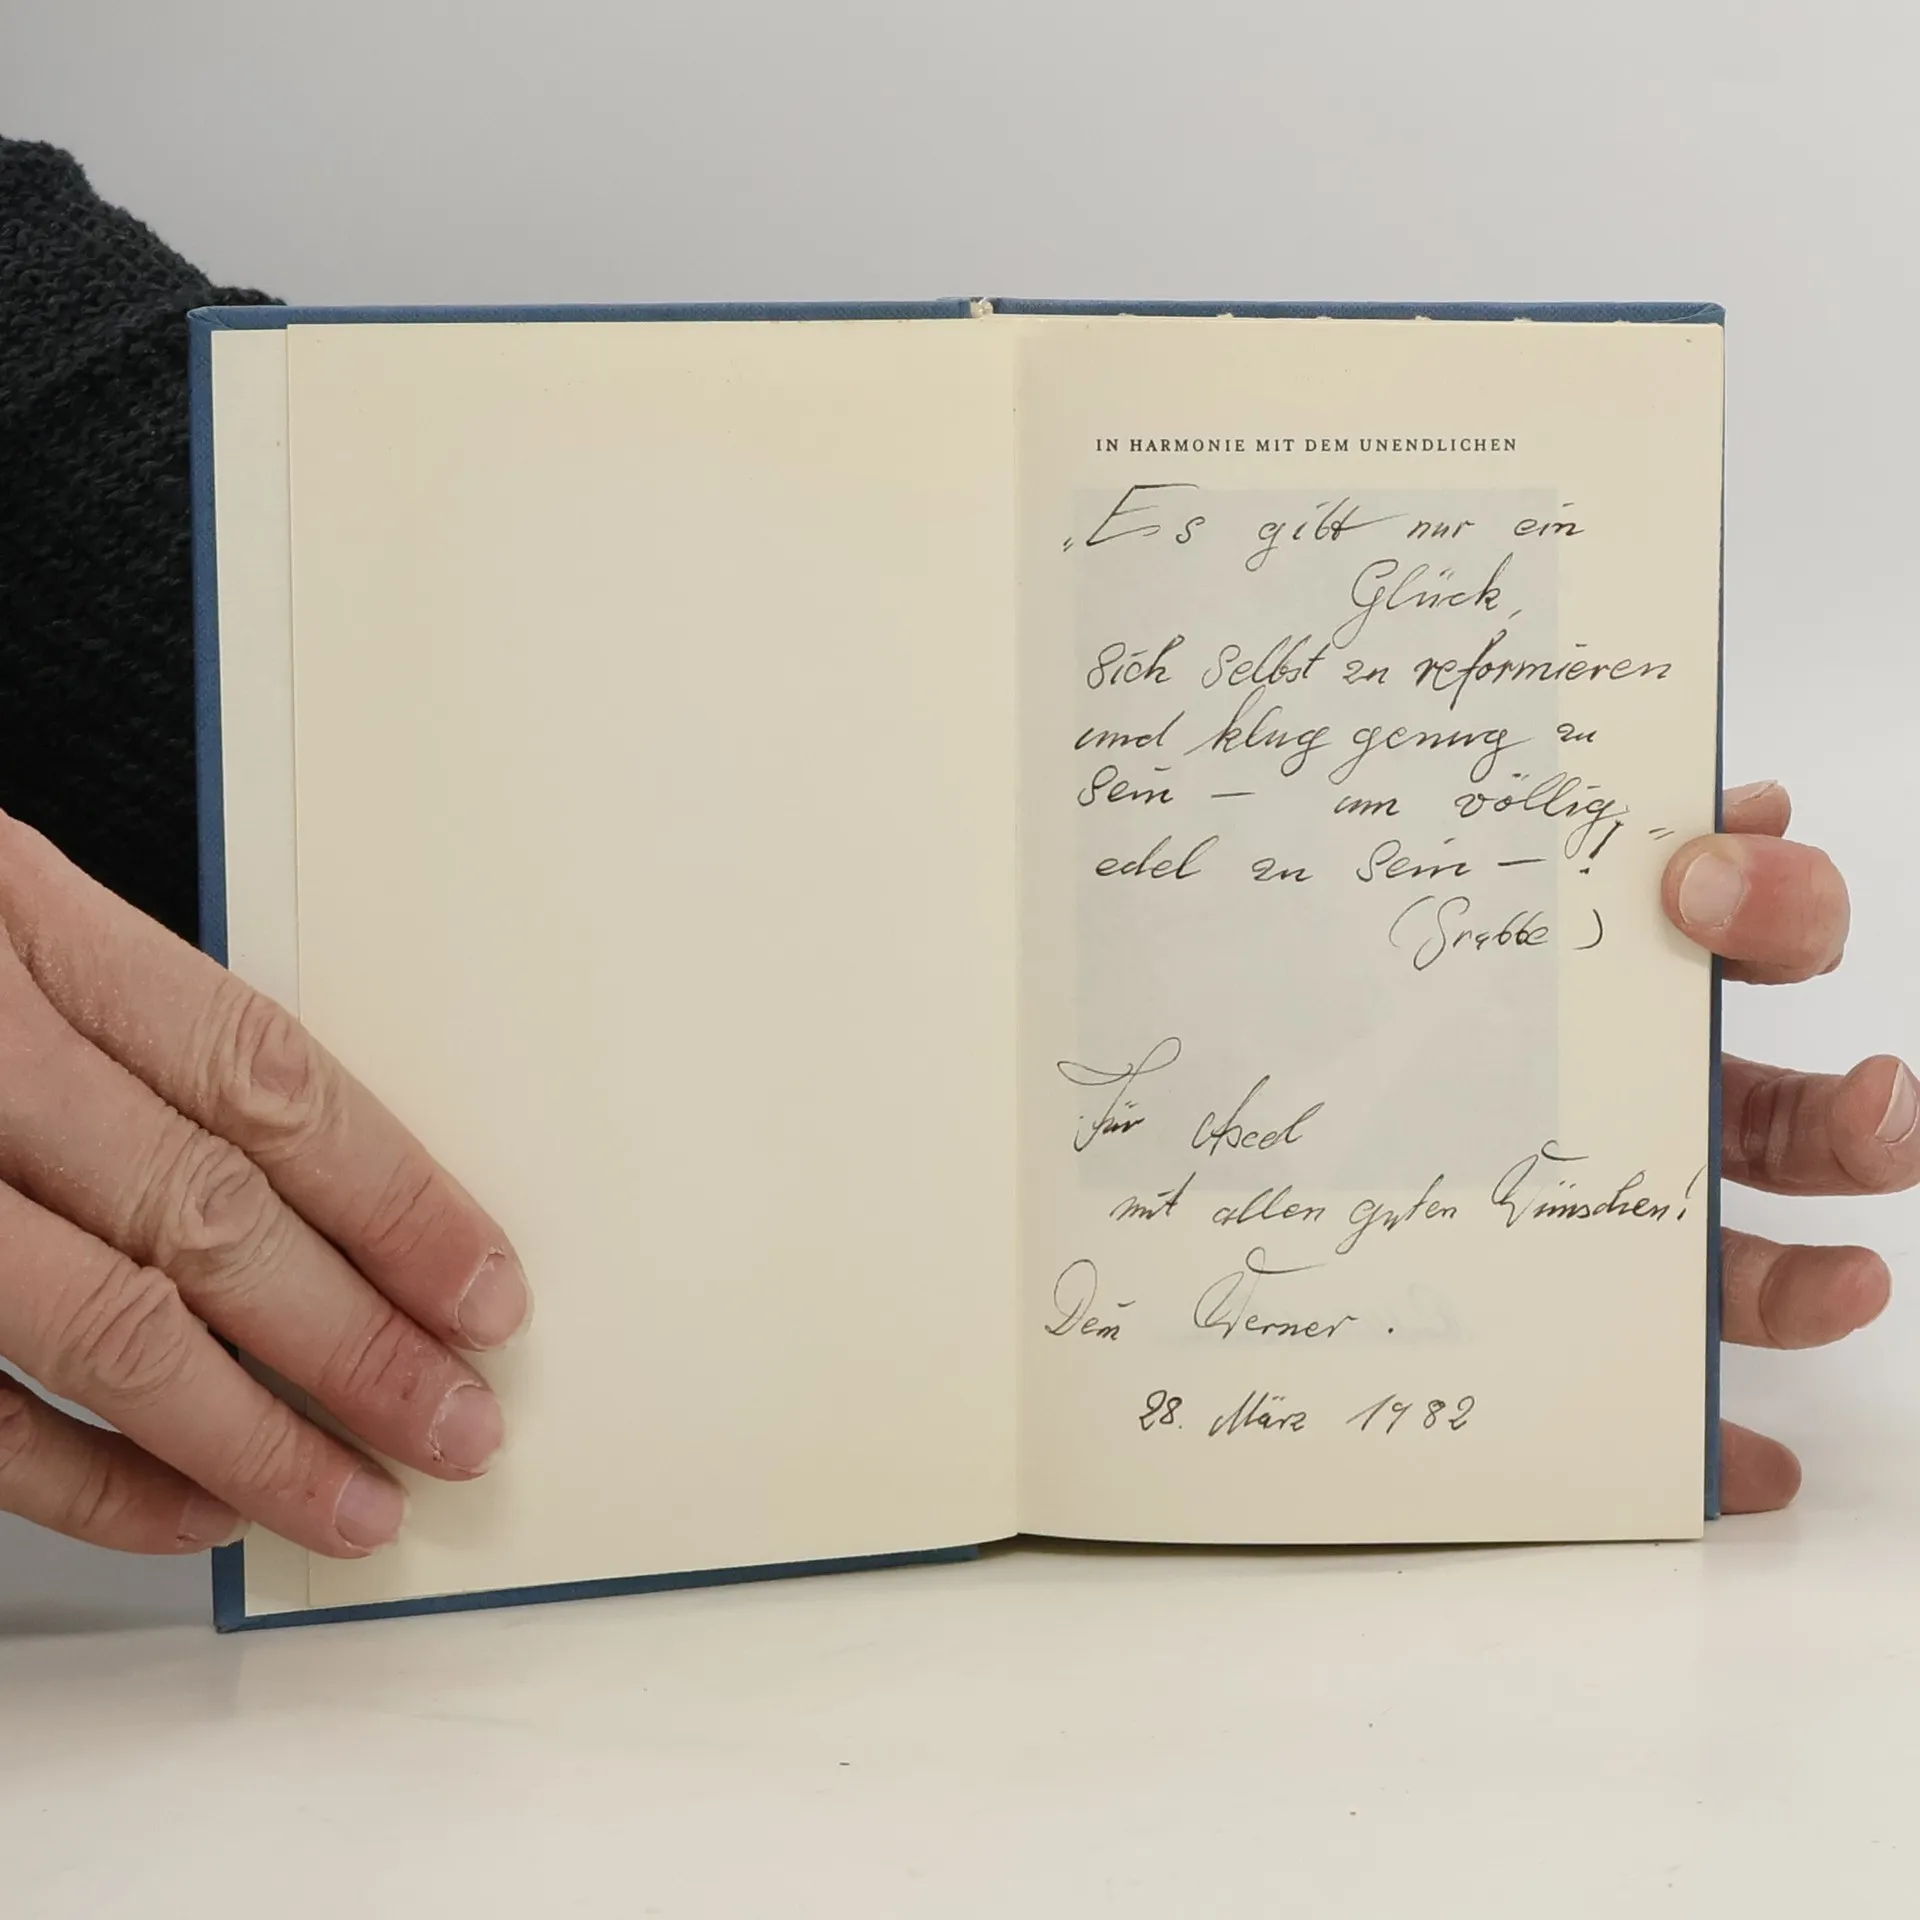 IN HARMONIE MIT DEM UNENDLICHEN
„Es gibt nur ein
Glück,
sich selbst zu reformieren
und klug genug zu
sein — um völlig
edel zu sein — !“
(Grabbe)
Für Axel
mit allen guten Wünschen!
Dein Werner.
28. März 1982